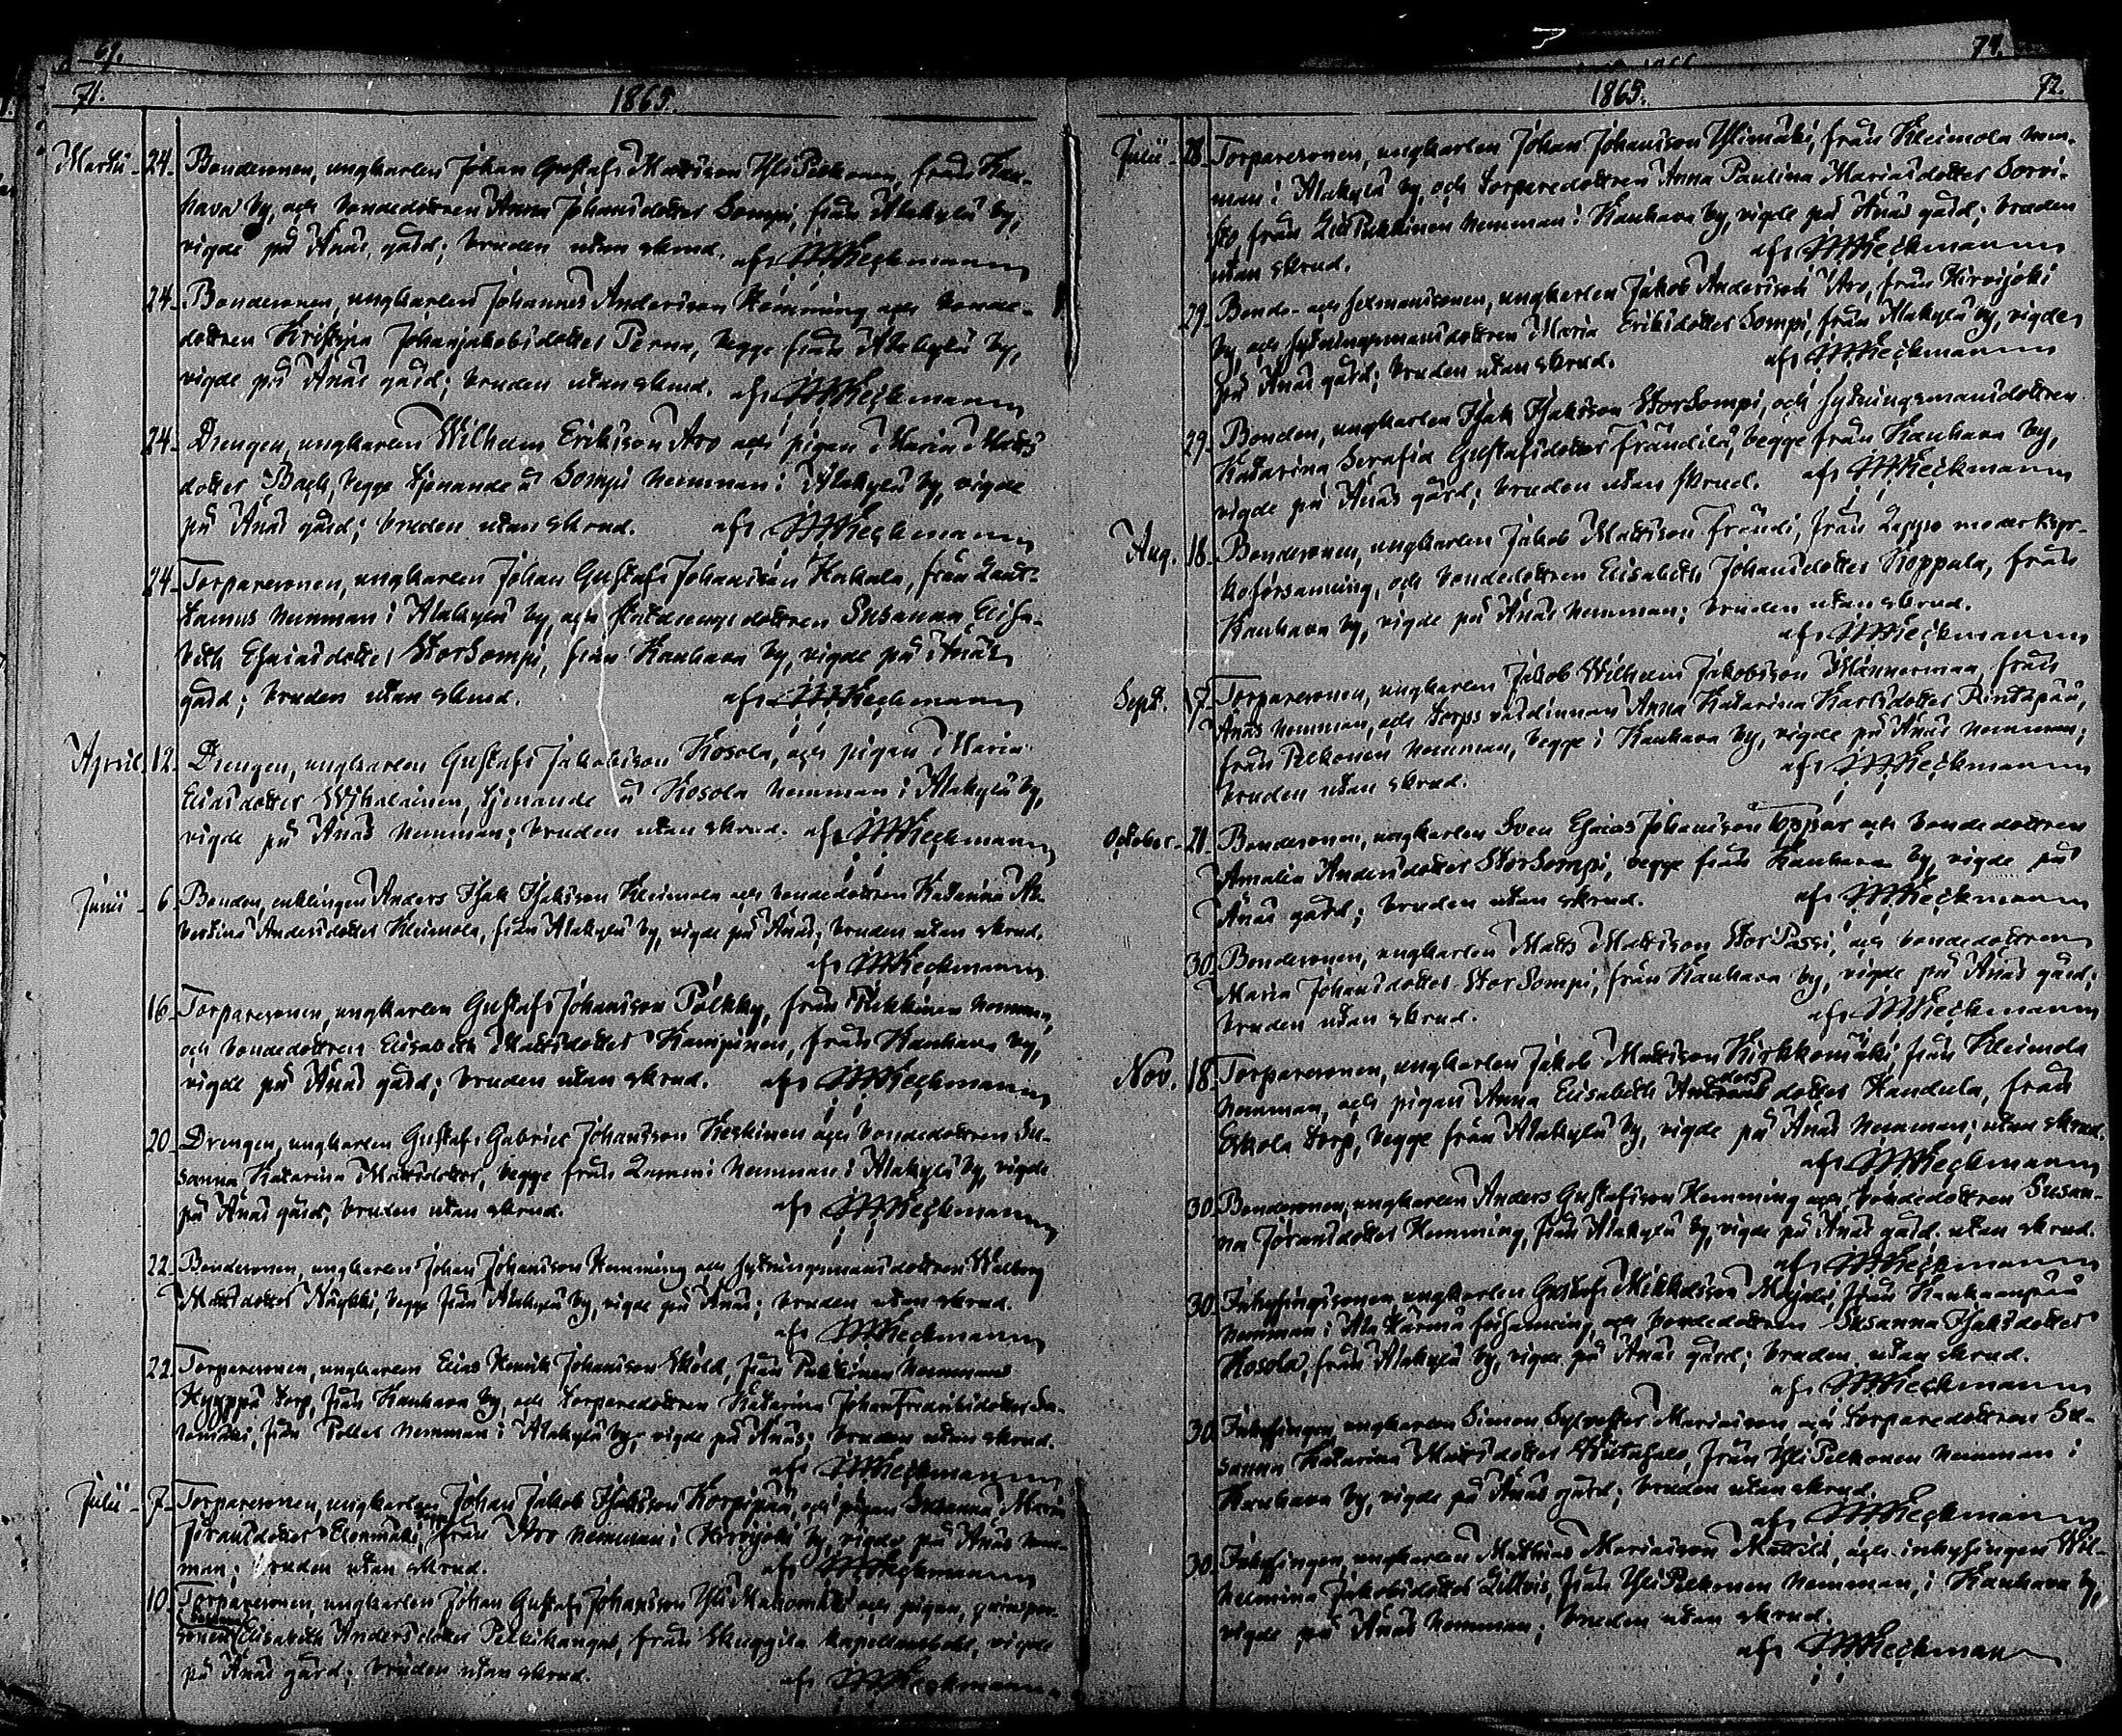 69.
71.
1865.
Martii - 24. Bondesonen, ungkarlen Johan Gustafs Mattsson YliPelkonen, från Kau-
hava by, och bondedottren Anna Johansdotter Sompi, från Alakylä by,
vigde på Ånäs gård; bruden utan skrud. af Heickmann
24. Bondesonen, ungkarlen Johannes Andersson Hemming och bonde-
dottren Kristina Johanjakobsdotter Perna, begge från Alakylä by,
vigde på Ånäs gård; bruden utan skrud. af Heickmann
24. Drengen, ungkarlen Wilhelm Eriksson Aro och pigan Maria Matts
dotter Back, begge tjenande å Sompi hemman i Alakylä by, vigde
på Ånäs gård; bruden utan skrud. af Heickmann
24. Torparesonen, ungkarlen Johan Gustafs Johansson, från
hemman i Alakylä by, och dottren Susanna Elisa-
beth Esaiasdotter StorSompi, från Kauhava by, vigde på Ånäs
gård; bruden utan skrud. af Heickmann
April. 12. Drengen, ungkarlen Gustafs Jakobsson Kosola, och pigan Maria
Eliasdotter, tjenande å Kosola hemman i Alakylä by,
vigde på Ånäs hemman; bruden utan skrud. af Heickmann
Junii - 6. Bonden, enklingen Anders Isak Isaksson Kleimola och bondedottren Katarina Al-
bertina Andersdotter Kleimola, från Alakylä by, vigde på Ånäs; bruden utan skrud.
af Heickmann
16. Torparesonen, ungkarlen Gustafs Johansson Pölkky, från Pukkinen hemman,
och bondedottren Elisabeth Mattsdotter Kamppinen, från Kauhava by,
vigde på Ånäs gård; bruden utan skrud. af Heickmann
20. Drengen, ungkarlen Gustafs Gabriel Johansson Keskinen och bondedottren Su-
sanna Katarina Mattsdotter, begge från Lammi hemman i Alakylä by, vigde
på Ånäs gård; bruden utan skrud. af Heickmann
22. Bondesonen, ungkarlen Johan Johansson Hemming och sytningsmansdottren Walborg
Mattsdotter, begge från Alakylä by, vigde på Ånäs; bruden utan skrud.
af Heickmann
22. Torparesonen, ungkarlen Elias Henrik Johansson Sköld, från Pukkinen hemmans
Hyyppä torp, från Kauhava by, och torparedottren Katarina JohanFredriksdotter Sa-
lomäki, från Pollet hemman i Alakylä by, vigde på Ånäs; bruden utan skrud.
af Heickmann
Julii - 7. Torparesonen, ungkarlen Johan Jakob Isaksson Korpipää, och pigan Susanna Maria
Jöransdotter Elonmäki begge från Aro hemman i Hirvijoki by, vigde på Ånäs hem-
man; bruden utan skrud. af Heickmann
10. Torparesonen, ungkarlen Johan Gustafs Johansson YliMahomäki och pigan, qvinsper-
sonen Elisabeth Andersdotter Pelkikangas, från Skuggila kapellansbohl, vigde
på Ånäs gård; bruden utan skrud. af Heickmann
74.
1865.
72.
Julii - 28. Torparesonen, ungkarlen Johan Johansson Ylimäki, från Kleimola hem-
man i Alakylä by, och torparedottren Anna Paulina Mariasdotter Sorvi-
sto, från LillPukkinen hemman i Kauhava by, vigde på Ånäs gård; bruden
utan skrud. af Heickmann
29. Bonde- och, ungkarlen Jakob Andersson Aro, från Hirvijoki
by, och sytningsmansdottren Maria Eriksdotter Sompi, från Alakylä by, vigde
på Ånäs gård; bruden utan skrud. af Heickmann
29. Bonden, ungkarlen Isak Isaksson StorSompi, och sytningsmansdottren
Katarina Serafia Gustafsdotter Frändilä, begge från Kauhava by,
vigde på Ånäs gård; bruden utan skrud. af Heickmann
Aug. 18. Bondesonen, ungkarlen Jakob Mattsson Frändi, från Lappo moderkyr-
koförsamling, och bondedottren Elisabeth Johansdotter Koppala, från
Kauhava by, vigde på Ånäs hemman; bruden utan skrud.
af Heickmann
Sept. 17. Torparesonen, ungkarlen Jakob Wilhelm Jakobsson Männermaa, från
Ånäs hemman, och torpsvärdinnan Anna Katarina Karlsdotter Rintapää,
från Pelkonen hemman, begge i Kauhava by, vigde på Ånäs hemman;
bruden utan skrud. af Heickmann
October - 21. Bondesonen, ungkarlen Sven Esaias Johansson Toppar och bondedottren
Amalia Andersdotter StorSompi, begge från Kauhava by, vigde på
Ånäs gård; bruden utan skrud. af Heickmann
30. Bondesonen, ungkarlen Matts Mattsson StorPassi, och bondedottren
Maria Johansdotter StorSompi, från Kauhava by, vigde på Ånäs gård;
bruden utan skrud. af Heickmann
Nov. 18. Torparesonen, ungkarlen Jakob Mattsson Kirkkomäki, från Kleimola
hemman, och pigan Anna Elisabeth Andersdotter Kandula, från
Eskola torp, begge från Alakylä by, vigde på Ånäs hemman; utan skrud.
af Heickmann
30. Bondesonen, ungkarlen Anders Gustafsson Hemming och bondedottren Susan-
na Jöransdotter Hemming, från Alakylä by, vigde på Ånäs gård. utan skrud.
af Heickmann
30. Inhysingssonen, ungkarlen Gustafs Mikkelsson, från Kauhaanpää
hemman i Ala Härmä församling, och bondedottren Susanna Isaksdotter
Kosola, från Alakylä by, vigde på Ånäs gård; bruden utan skrud.
af Heickmann
30. Inhysingen, ungkarlen Simon Sylvester Mariasson, och torparedottren Su-
sanna Katarina Mattsdotter Wiitasalo, från YliPelkonen hemman i
Kauhava by, vigde på Ånäs gård; bruden utan skrud.
af Heickmann
30. Inhysingen, ungkarlen Matthias Mariasson Mattila, och inhysingen Wil-
helmina Jakobsdotter Lillvis, från YliPelkonen hemman, i Kauhava by,
vigde på Ånäs hemman; bruden utan skrud.
af Heickmann